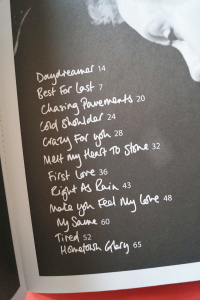 Daydreamer 14
Best For Last 7
Chasing Pavements 20
Cold Shoulder 24
Crazy For you 28
Melt My Heart To Stone 32
First Love 36
Right As Rain 43
Make you Feel My Love 48
My Same 60
Tired 52
Hometown Glory 65